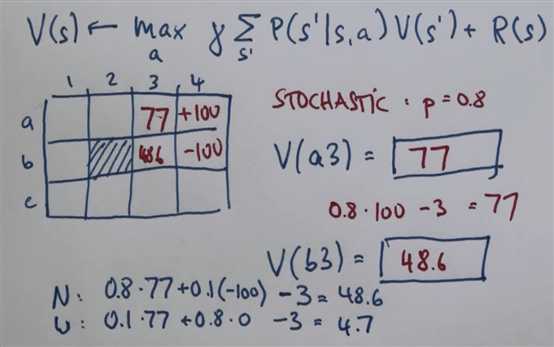 V(s) ← max γ Σ P(s'|s,a) V(s') + R(s)
a s'
1 2 3 4
a 77 +100
b 48.6 -100
c
STOCHASTIC : p=0.8
V(a3) = 77
0.8·100 -3 = 77
V(b3) = 48.6
N: 0.8·77+0.1(-100) -3 = 48.6
W: 0.1·77 +0.8·0 -3 = 4.7